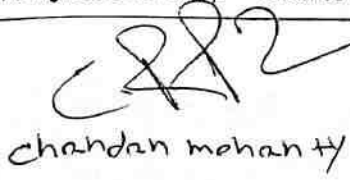 chandan mohanty